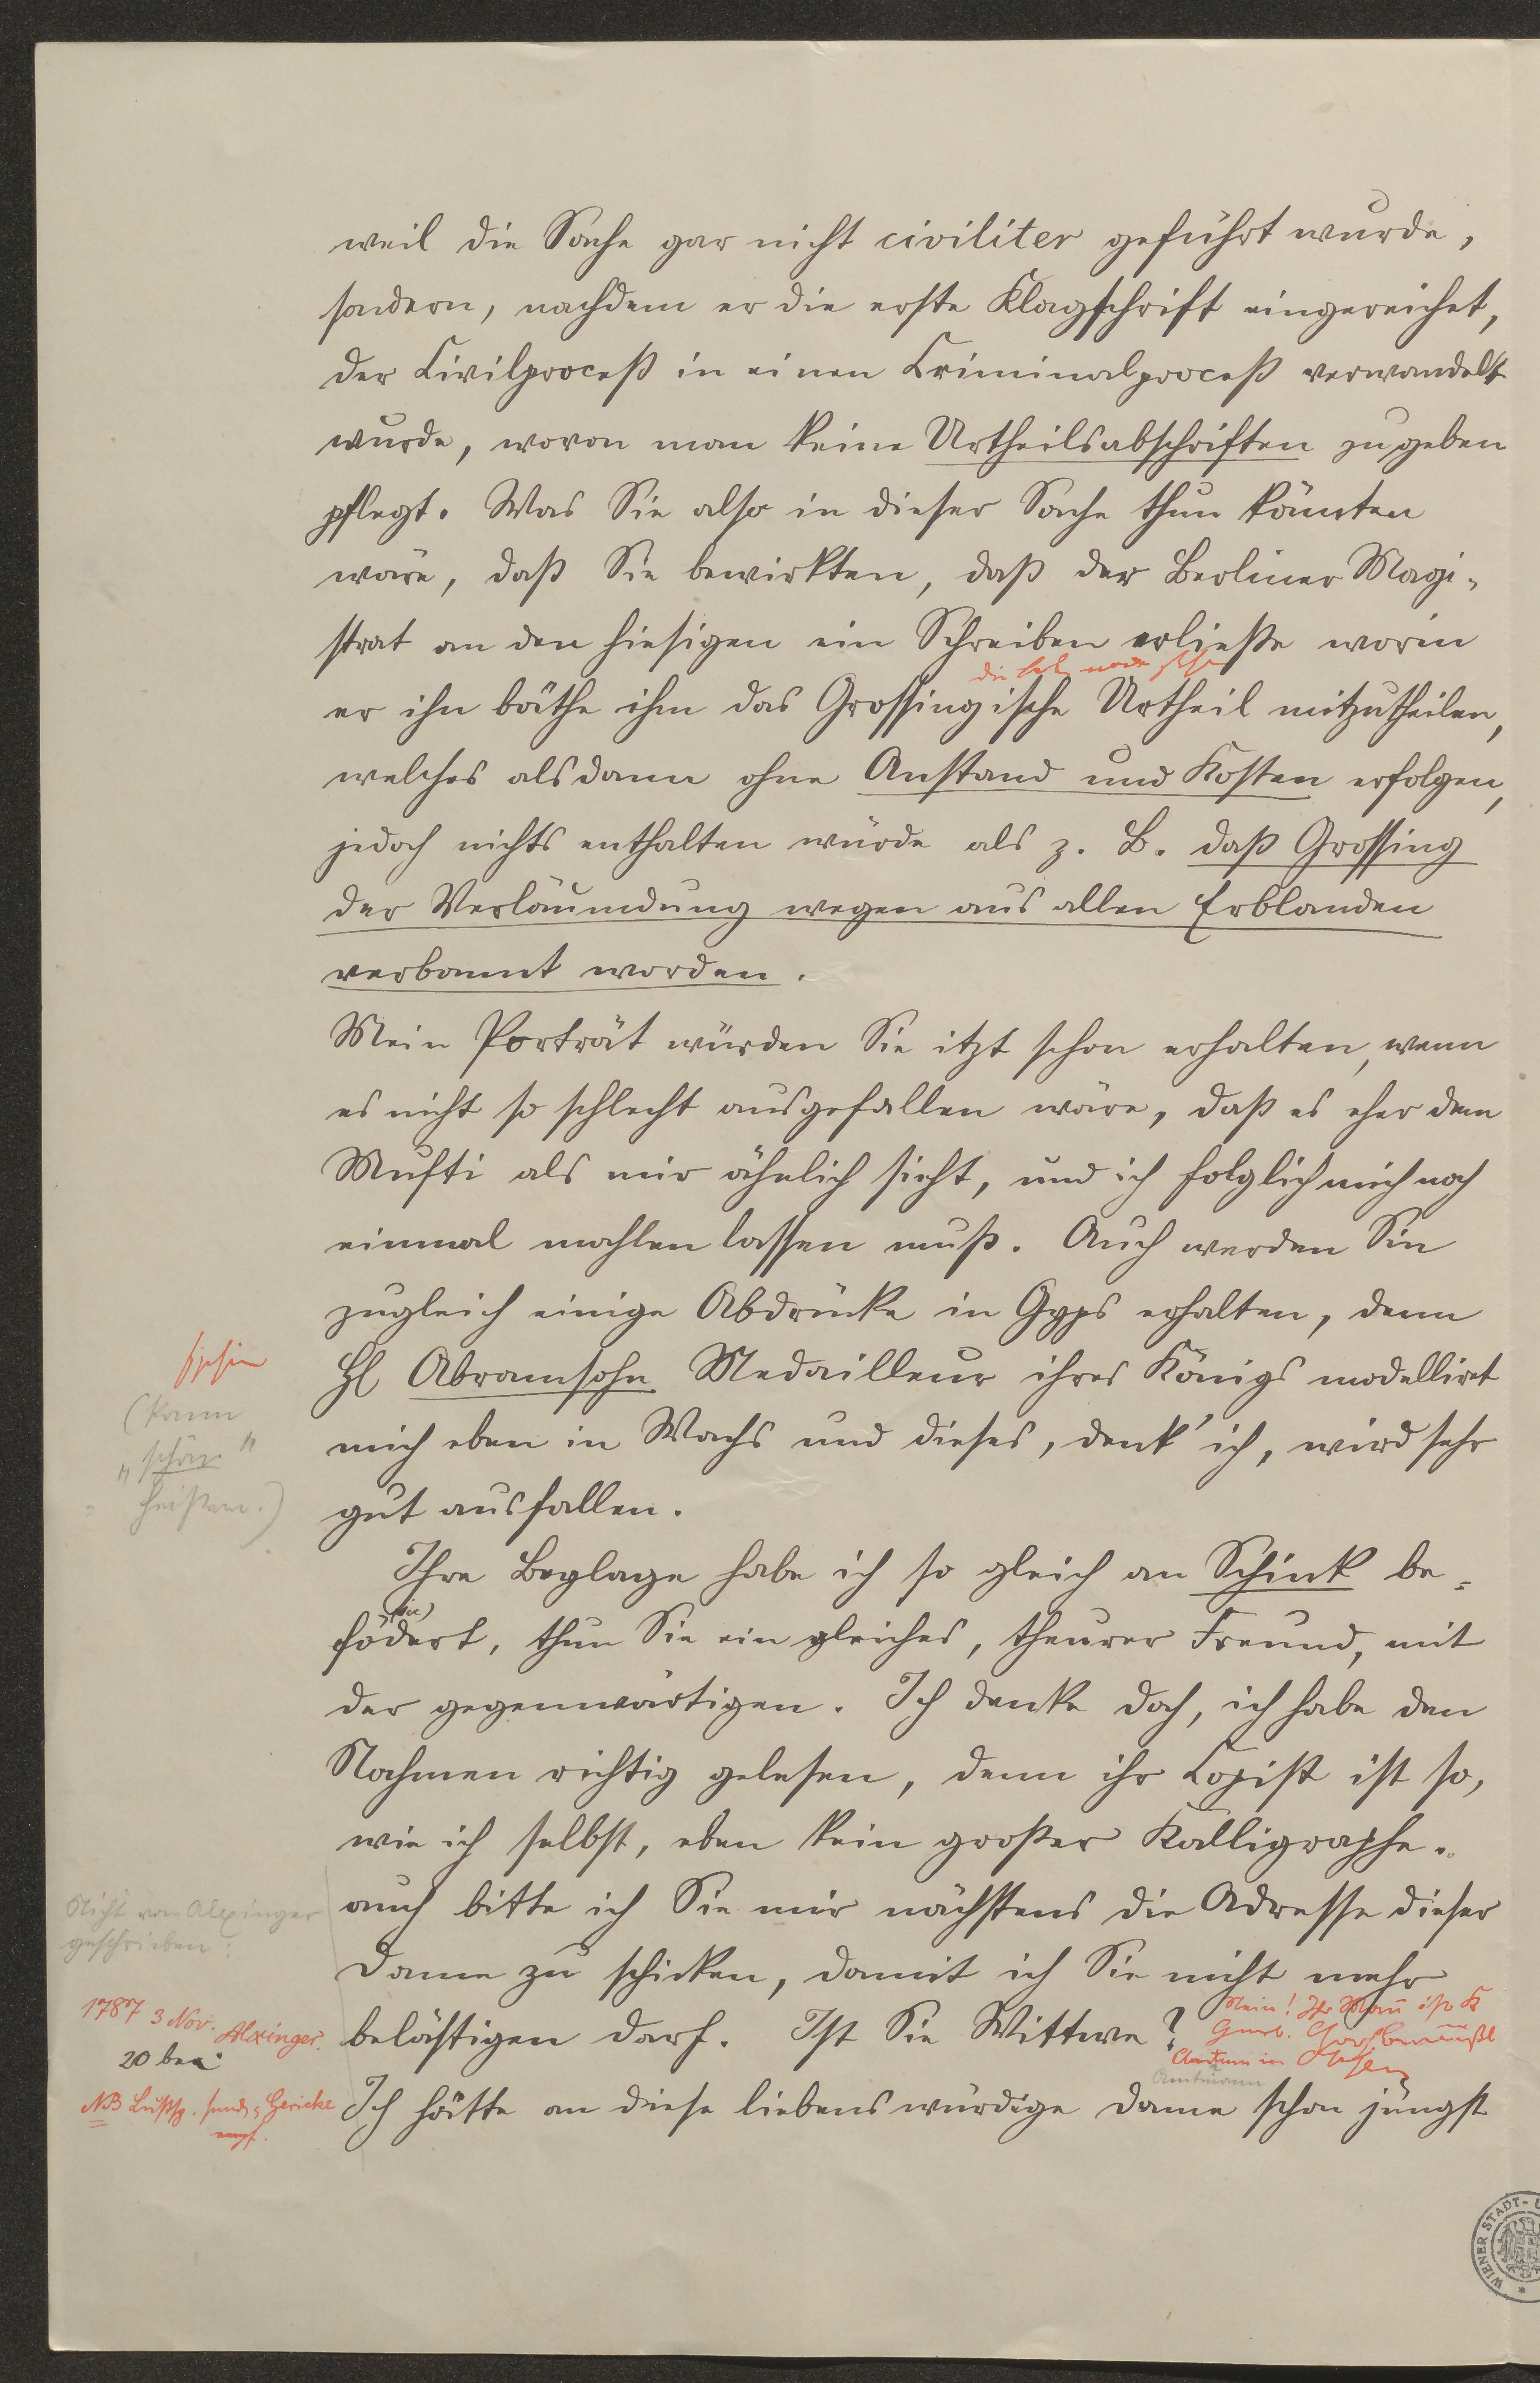 weil die Sache gar nicht civiliter geführt wurde,
sondern, nachdem er die erste Klagschrift eingereichet,
der Civilproceß in einen Criminalproceß verwandelt
wurde, wovon man keine Urtheilsabschriften zu geben
pflegt. Was Sie also in dieser Sache thun könnten
wäre, daß Sie bewirkten, daß der Berliner Magi-
strat an den hiesigen ein Schreiben erließe worin
er ihn bäthe ihm das Grossingische Urtheil mitzutheilen,
welches alsdann ohne Anstand und Kosten erfolgen,
jedoch nichts enthalten würde als z. B. daß Grossing
der Verläumdung wegen aus allen Erblanden
verbannt worden.
Mein Porträt würden Sie itzt schon erhalten, wenn
es nicht so schlecht ausgefallen wäre, daß es eher dem
Mufti als mir ähnlich sieht, und ich folglich mich noch
einmal mahlen lassen muß. Auch werden Sie
zugleich einige Abdrücke in Gyps erhalten, denn
H Abramsohn Medailleur ihres Königs modelliret
mich eben in Wachs und dieses, denk' ich, wird sehr
gut ausfallen.
(kann
„schön"
heißen.)
Ihre Beylage habe ich so gleich an Schink be-
(sic)
födert, thun Sie ein gleiches, theurer Freund, mit
der gegenwärtigen. Ich denke doch, ich habe den
Nahmen richtig gelesen, denn ihr Copist ist so,
wie ich selbst, eben kein großer Kalligraphe.
auch bitte ich Sie mir nächstens die Adresse dieser
Dame zu schicken, damit ich Sie nicht mehr
belästigen darf. Ist Sie Wittwe?
Nein! Ihr Mañ ist K
Amtmann
Nicht von Alxinger
geschrieben:
1787 3 Nov. Alxinger.
20 bea
NB Lustsp. Gericke
Ich hätte an diese liebenswürdige Dame schon jüngst
WIENER STADT-